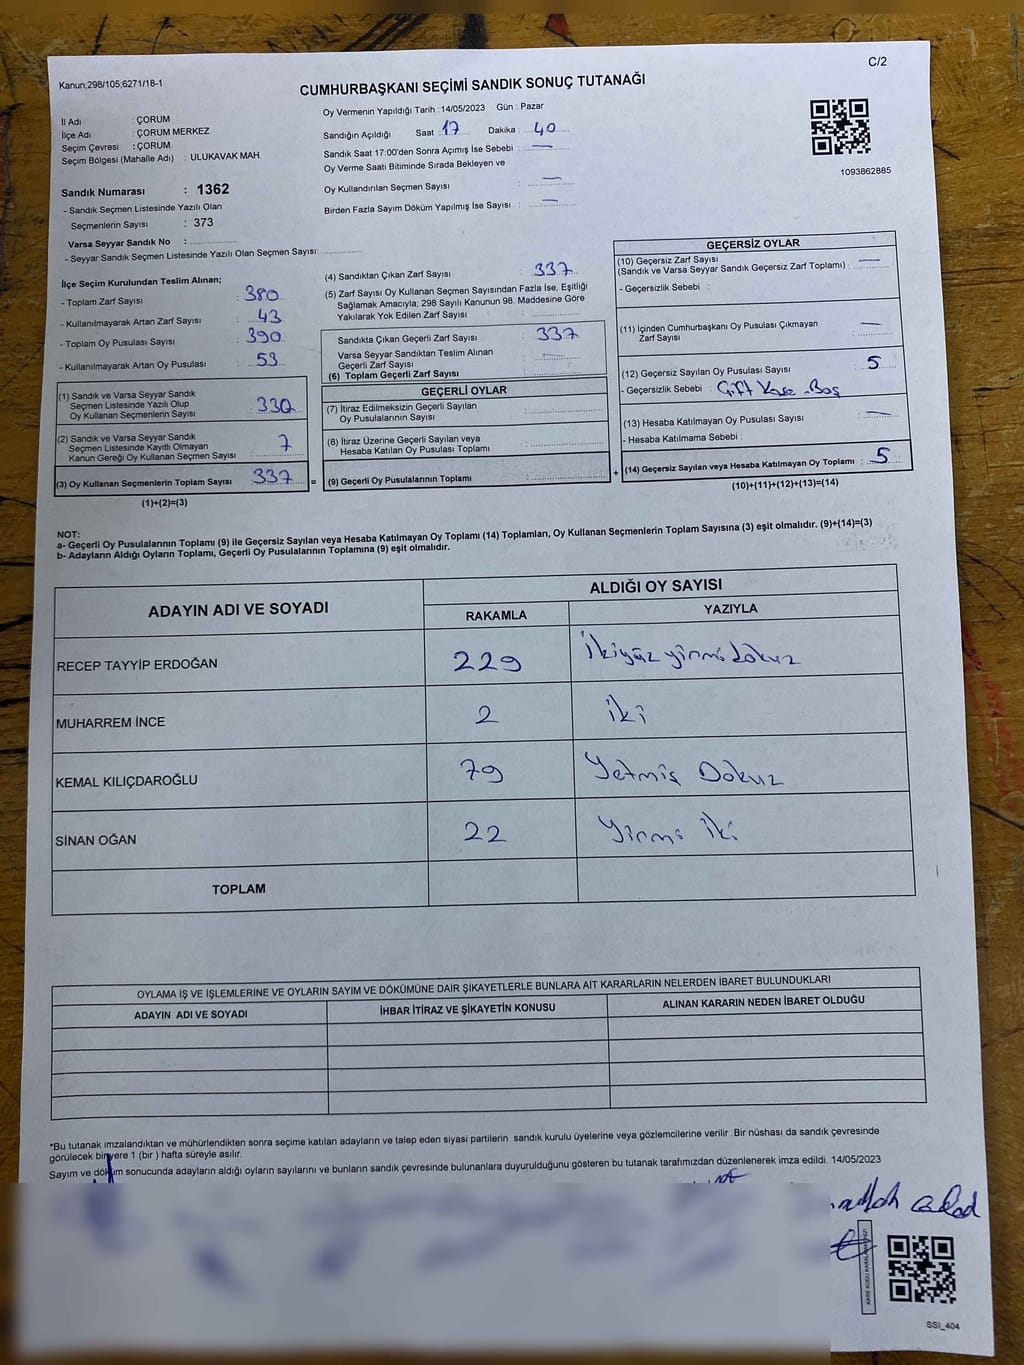 Kanun;298/105;6271/18-1
C/2
CUMHURBAŞKANI SEÇİMİ SANDIK SONUÇ TUTANAĞI
İl Adı : ÇORUM
İlçe Adı : ÇORUM MERKEZ
Seçim Çevresi : ÇORUM
Seçim Bölgesi (Mahalle Adı) : ULUKAVAK MAH.
Sandık Numarası : 1362
- Sandık Seçmen Listesinde Yazılı Olan
Seçmenlerin Sayısı : 373
Varsa Seyyar Sandık No :
- Seyyar Sandık Seçmen Listesinde Yazılı Olan Seçmen Sayısı:
Oy Vermenin Yapıldığı Tarih : 14/05/2023 Gün : Pazar
Sandığın Açıldığı Saat : 17 Dakika : 40
Sandık Saat 17:00'den Sonra Açımış İse Sebebi : —
Oy Verme Saati Bitiminde Sırada Bekleyen ve
Oy Kullandırılan Seçmen Sayısı : —
Birden Fazla Sayım Döküm Yapılmış İse Sayısı : —
1093862885
İlçe Seçim Kurulundan Teslim Alınan;
- Toplam Zarf Sayısı : 380
- Kullanılmayarak Artan Zarf Sayısı : 43
- Toplam Oy Pusulası Sayısı : 390
- Kullanılmayarak Artan Oy Pusulası : 53
(1) Sandık ve Varsa Seyyar Sandık
Seçmen Listesinde Yazılı Olup
Oy Kullanan Seçmenlerin Sayısı : 330
(2) Sandık ve Varsa Seyyar Sandık
Seçmen Listesinde Kayıtlı Olmayan
Kanun Gereği Oy Kullanan Seçmen Sayısı : 7
(3) Oy Kullanan Seçmenlerin Toplam Sayısı : 337 =
(1)+(2)=(3)
(4) Sandıktan Çıkan Zarf Sayısı : 337
(5) Zarf Sayısı Oy Kullanan Seçmen Sayısından Fazla İse, Eşitliği
Sağlamak Amacıyla; 298 Sayılı Kanunun 98. Maddesine Göre
Yakılarak Yok Edilen Zarf Sayısı :
Sandıkta Çıkan Geçerli Zarf Sayısı : 337
Varsa Seyyar Sandıktan Teslim Alınan
Geçerli Zarf Sayısı : —
(6) Toplam Geçerli Zarf Sayısı :
GEÇERLİ OYLAR
(7) İtiraz Edilmeksizin Geçerli Sayılan
Oy Pusulalarının Sayısı :
(8) İtiraz Üzerine Geçerli Sayılan veya
Hesaba Katılan Oy Pusulası Toplamı :
(9) Geçerli Oy Pusulalarının Toplamı : +
GEÇERSİZ OYLAR
(10) Geçersiz Zarf Sayısı
(Sandık ve Varsa Seyyar Sandık Geçersiz Zarf Toplamı) : —
- Geçersizlik Sebebi :
(11) İçinden Cumhurbaşkanı Oy Pusulası Çıkmayan
Zarf Sayısı : —
(12) Geçersiz Sayılan Oy Pusulası Sayısı : 5
- Geçersizlik Sebebi : Çift Kaşe - Boş
(13) Hesaba Katılmayan Oy Pusulası Sayısı : —
- Hesaba Katılmama Sebebi :
(14) Geçersiz Sayılan veya Hesaba Katılmayan Oy Toplamı : 5
(10)+(11)+(12)+(13)=(14)
NOT:
a- Geçerli Oy Pusulalarının Toplamı (9) ile Geçersiz Sayılan veya Hesaba Katılmayan Oy Toplamı (14) Toplamları, Oy Kullanan Seçmenlerin Toplam Sayısına (3) eşit olmalıdır. (9)+(14)=(3)
b- Adayların Aldığı Oyların Toplamı, Geçerli Oy Pusulalarının Toplamına (9) eşit olmalıdır.
ADAYIN ADI VE SOYADI
ALDIĞI OY SAYISI
RAKAMLA YAZIYLA
RECEP TAYYİP ERDOĞAN 229 İkiyüz yirmi dokuz
MUHARREM İNCE 2 iki
KEMAL KILIÇDAROĞLU 79 Yetmiş Dokuz
SİNAN OĞAN 22 Yirmi iki
TOPLAM
OYLAMA İŞ VE İŞLEMLERİNE VE OYLARIN SAYIM VE DÖKÜMÜNE DAİR ŞİKAYETLERLE BUNLARA AİT KARARLARIN NELERDEN İBARET BULUNDUKLARI
ADAYIN ADI VE SOYADI İHBAR İTİRAZ VE ŞİKAYETİN KONUSU ALINAN KARARIN NEDEN İBARET OLDUĞU
*Bu tutanak imzalandıktan ve mühürlendikten sonra seçime katılan adayların ve talep eden siyasi partilerin sandık kurulu üyelerine veya gözlemcilerine verilir .Bir nüshası da sandık çevresinde
görülecek bir yere 1 (bir ) hafta süreyle asılır.
Sayım ve döküm sonucunda adayların aldığı oyların sayılarını ve bunların sandık çevresinde bulunanlara duyurulduğunu gösteren bu tutanak tarafımızdan düzenlenerek imza edildi. 14/05/2023
SSI_404